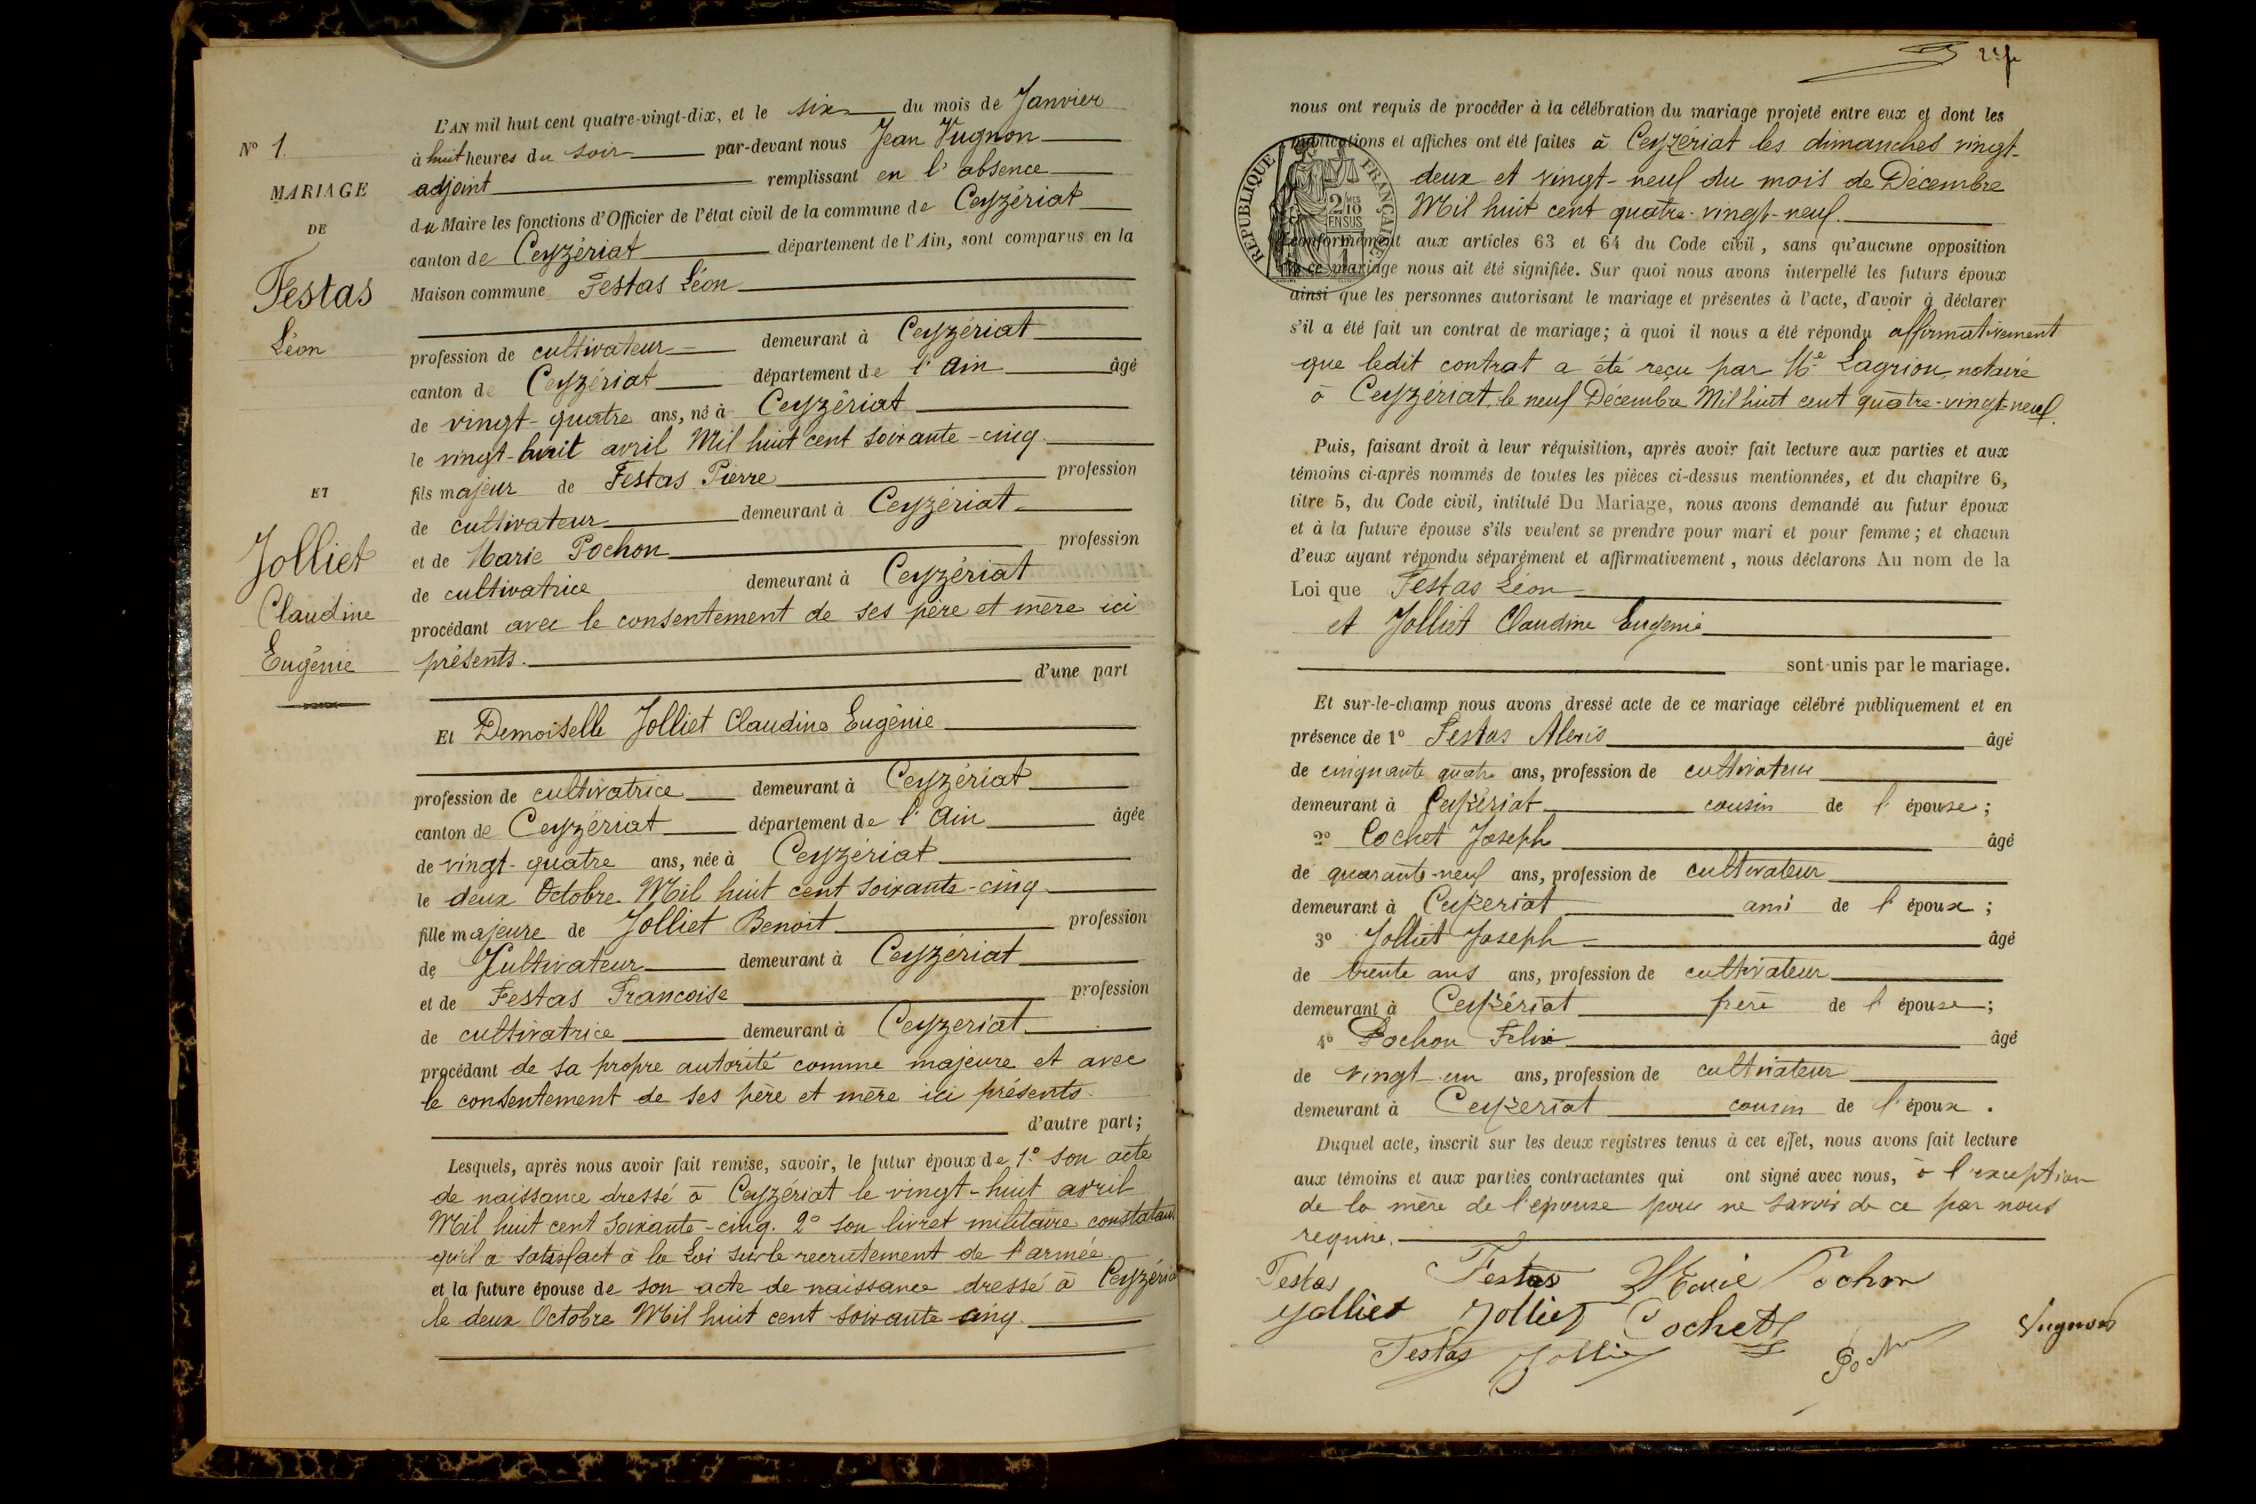 N° 1.
MARIAGE
DE
Festas
Léon
ET
Jolliet
Claudine
Eugénie
L'AN mil huit cent quatre-vingt-dix, et le six du mois de Janvier
à huit heures du soir par-devant nous Jean Vugnon
adjoint remplissant en l'absence
du Maire les fonctions d'Officier de l'état civil de la commune de Ceyzériat
canton de Ceyzériat département de l'Ain, sont comparus en la
Maison commune Festas Léon
profession de cultivateur demeurant à Ceyzériat
canton de Ceyzériat département de l'Ain âgé
de vingt-quatre ans, né à Ceyzériat
le vingt-huit avril Mil huit cent soixante-cinq
fils majeur de Festas Pierre profession
de cultivateur demeurant à Ceyzériat
et de Marie Pochon profession
de cultivatrice demeurant à Ceyzériat
procédant avec le consentement de ses père et mère ici
présents.
d'une part
Et Demoiselle Jolliet Claudine Eugénie
profession de cultivatrice demeurant à Ceyzériat
canton de Ceyzériat département de l'Ain âgée
de vingt-quatre ans, née à Ceyzériat
le deux Octobre Mil huit cent soixante-cinq
fille majeure de Jolliet Benoit profession
de Cultivateur demeurant à Ceyzériat
et de Festas Francoise profession
de cultivatrice demeurant à Ceyzeriat
procédant de sa propre autorité comme majeure et avec
le consentement de ses père et mère ici présents.
d'autre part;
Lesquels, après nous avoir fait remise, savoir, le futur époux de 1° son acte
de naissance dressé à Ceyzériat le vingt-huit avril
Mil huit cent soixante-cinq. 2° son livret militaire constatant
qu'il a satisfact à la Loi sur le recrutement de l'armée.
et la future épouse de son acte de naissance dressé à Ceyzéria
le deux Octobre Mil huit cent soixante cinq.
nous ont requis de procéder à la célébration du mariage projeté entre eux et dont les
publications et affiches ont été faites à Ceyzériat les dimanches vingt-
deux et vingt-neuf du mois de Décembre
Mil huit cent quatre-vingt-neuf.
REPUBLIQUE FRANÇAISE
2/10 EN SUS
conformément aux articles 63 et 64 du Code civil, sans qu'aucune opposition
à ce mariage nous ait été signifiée. Sur quoi nous avons interpellé les futurs époux
ainsi que les personnes autorisant le mariage et présentes à l'acte, d'avoir à déclarer
s'il a été fait un contrat de mariage; à quoi il nous a été répondu affirmativement
que ledit contrat a été reçu par Me Lagrion, notaire
à Ceyzériat, le neuf Décembre Mil huit cent quatre-vingt-neuf.
Puis, faisant droit à leur réquisition, après avoir fait lecture aux parties et aux
témoins ci-après nommés de toutes les pièces ci-dessus mentionnées, et du chapitre 6,
titre 5, du Code civil, intitulé Du Mariage, nous avons demandé au futur époux
et à la future épouse s'ils veulent se prendre pour mari et pour femme; et chacun
d'eux ayant répondu séparément et affirmativement, nous déclarons Au nom de la
Loi que Festas Léon
et Jolliet Claudine Eugenie
sont unis par le mariage.
Et sur-le-champ nous avons dressé acte de ce mariage célébré publiquement et en
présence de 1° Festas Alexis âgé
de cinquante quatre ans, profession de cultivateur
demeurant à Ceyzériat cousin de l'épouse;
2° Cochet Joseph âgé
de quarante-neuf ans, profession de cultivateur
demeurant à Ceyzeriat ami de l'époux;
3° Jolliet Joseph âgé
de trente ans ans, profession de cultivateur
demeurant à Ceyzériat frère de l'épouse;
4° Pochon Felix âgé
de vingt-un ans, profession de cultivateur
demeurant à Ceyzeriat cousin de l'époux.
Duquel acte, inscrit sur les deux registres tenus à cet effet, nous avons fait lecture
aux témoins et aux parties contractantes qui ont signé avec nous, à l'exception
de la mère de l'épouse pour ne savoir de ce par nous
requise.
Festas Festas Marie Pochon
Jolliet Jolliet Cochet Vugnon
Festas Jolliet